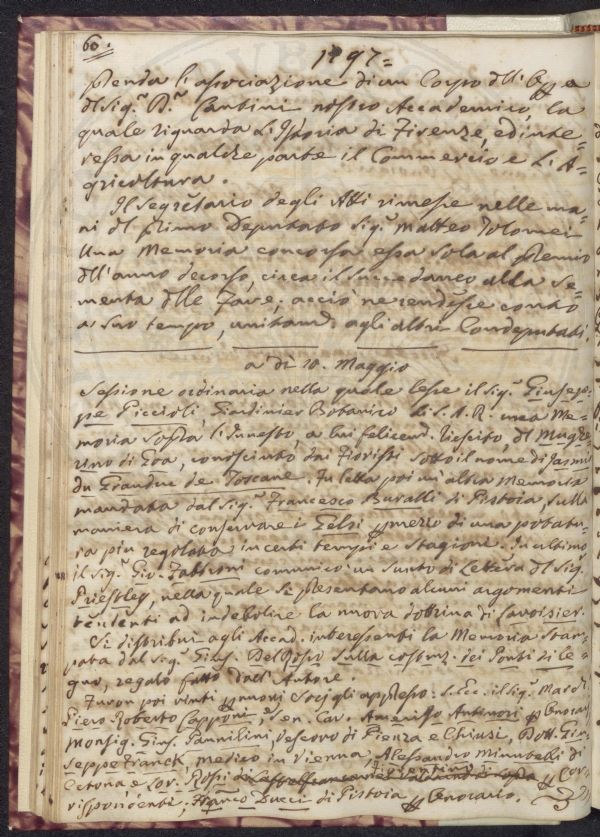 60.
1797=
prenda l'associazione di un Corpo dell'Op.a
del Sig.r D.r Cantini nostro Accademico, la
quale riguarda l'Istoria di Firenze, ed inte=
ressa in qualche parte il Commercio e l'A=
gricoltura.
Il Segretario degli Atti rimesse nelle ma=
ni del primo Deputato Sig.r Matteo Tolomei
una Memoria concorsa essa sola al premio
dell'anno decorso, circa il succedaneo alla Se=
menta delle Fave; acciò ne rendesse conto
a suo tempo, unitam.e agli altri Condeputati.
a dì 10. Maggio
Sessione ordinaria nella quale lesse il Sig.r Giusep=
pe Piccioli, Giardinier Botanico di S.A.R. una Me=
moria sopra l'Innesto, a lui felicem.e riescito, del Mughe=
rino di Goa, conosciuto dai Fioristi sotto il nome di Jasmin
du Granduc de Toscane. Fu letta poi un'altra Memoria
mandata dal Sig.r Francesco Buralli di Pistoia, sulla
maniera di conservare i Gelsi p mezzo di una potatu=
ra più regolata in certi tempi e stagioni. In ultimo
il Sig.r Gio. Fabbroni comunicò un Sunto di Lettera del Sig.r
Priestley, nella quale si presentano alcuni argomenti
tendenti ad indebolire la nuova dottrina di Lavoisier.
Si distribuì agli Accad. interessanti la Memoria stam=
pata dal Sig.r Gius. Del Rosso sulla costruz. dei Ponti di Le=
gno, regalo fatto dall'Autore.
Furon poi vinti p nuovi Socj gli appresso: S. Ecc. il Sig.r March.
Piero Roberto Capponi, e Sen. Cav. Amerigo Antinori p Onorarj
Monsig. Gius. Pannilini, Vescovo di Pienza e Chiusi, Dott. Giu=
seppe Franck, medico in Vienna, Alessandro Minutelli di
Cetona, e Lor. Rossi di p Cor=
rispondenti; Franco Ducci di Pistoia p Onorario.